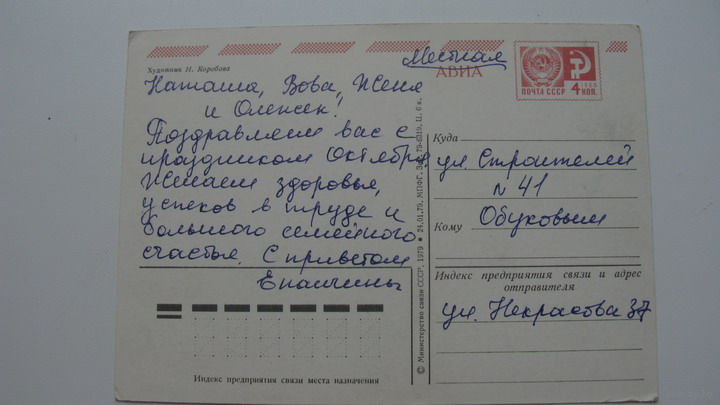 Художник И. Коробова
Местная
АВИА
ПОЧТА СССР 4 КОП.
Наташа, Вова, Женя
и Олежек!
Поздравляем вас с
праздником Октября
Желаем здоровья,
успехов в труде и
большого семейного
счастья. С приветом
Епанчины
© Министерство связи СССР, 1979 ★ 24.01.79, МПФГ, Ц. 6 к.
Куда
ул. Строителей
n 41
Кому Обуховым
Индекс предприятия связи и адрес
отправителя
ул. Некрасова 37
Индекс предприятия связи места назначения